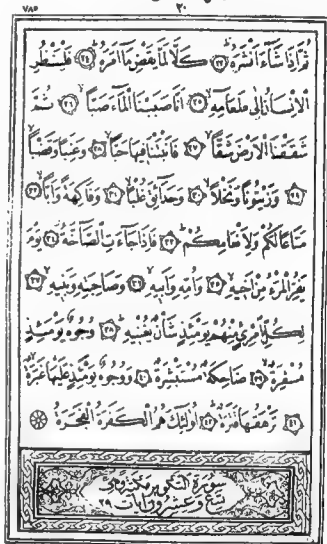 ٧٨٥ ٣٠
ثُمَّ اِذَا شَٓاءَ اَنْشَرَهُ ﴿٢٢﴾ كَلَّا لَمَّا يَقْضِ مَٓا اَمَرَهُ ﴿٢٣﴾ فَلْيَنْظُرِ
الْاِنْسَانُ اِلٰى طَعَامِه۪ ﴿٢٤﴾ اَنَّا صَبَبْنَا الْمَٓاءَ صَبًّا ﴿٢٥﴾ ثُمَّ
شَقَقْنَا الْاَرْضَ شَقًّا ﴿٢٦﴾ فَاَنْبَتْنَا ف۪يهَا حَبًّا ﴿٢٧﴾ وَعِنَبًا وَقَضْبًا
﴿٢٨﴾ وَزَيْتُونًا وَنَخْلًا ﴿٢٩﴾ وَحَدَٓائِقَ غُلْبًا ﴿٣٠﴾ وَفَاكِهَةً وَاَبًّا ﴿٣١﴾
مَتَاعًا لَكُمْ وَلِاَنْعَامِكُمْ ﴿٣٢﴾ فَاِذَا جَٓاءَتِ الصَّٓاخَّةُ ﴿٣٣﴾ يَوْمَ
يَفِرُّ الْمَرْءُ مِنْ اَخ۪يهِ ﴿٣٤﴾ وَاُمِّه۪ وَاَب۪يهِ ﴿٣٥﴾ وَصَاحِبَتِه۪ وَبَن۪يهِ ﴿٣٦﴾
لِكُلِّ امْرِئٍ مِنْهُمْ يَوْمَئِذٍ شَأْنٌ يُغْن۪يهِ ﴿٣٧﴾ وُجُوهٌ يَوْمَئِذٍ
مُسْفِرَةٌ ﴿٣٨﴾ ضَاحِكَةٌ مُسْتَبْشِرَةٌ ﴿٣٩﴾ وَوُجُوهٌ يَوْمَئِذٍ عَلَيْهَا غَبَرَةٌ
﴿٤٠﴾ تَرْهَقُهَا قَتَرَةٌ ﴿٤١﴾ اُولٰٓئِكَ هُمُ الْكَفَرَةُ الْفَجَرَةُ
سورة التكوير مكية وهي
تسع وعشرون آيات ٢٩